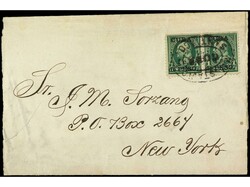 Sr. J. M. Sorzano
P.O. Box 2667
New York